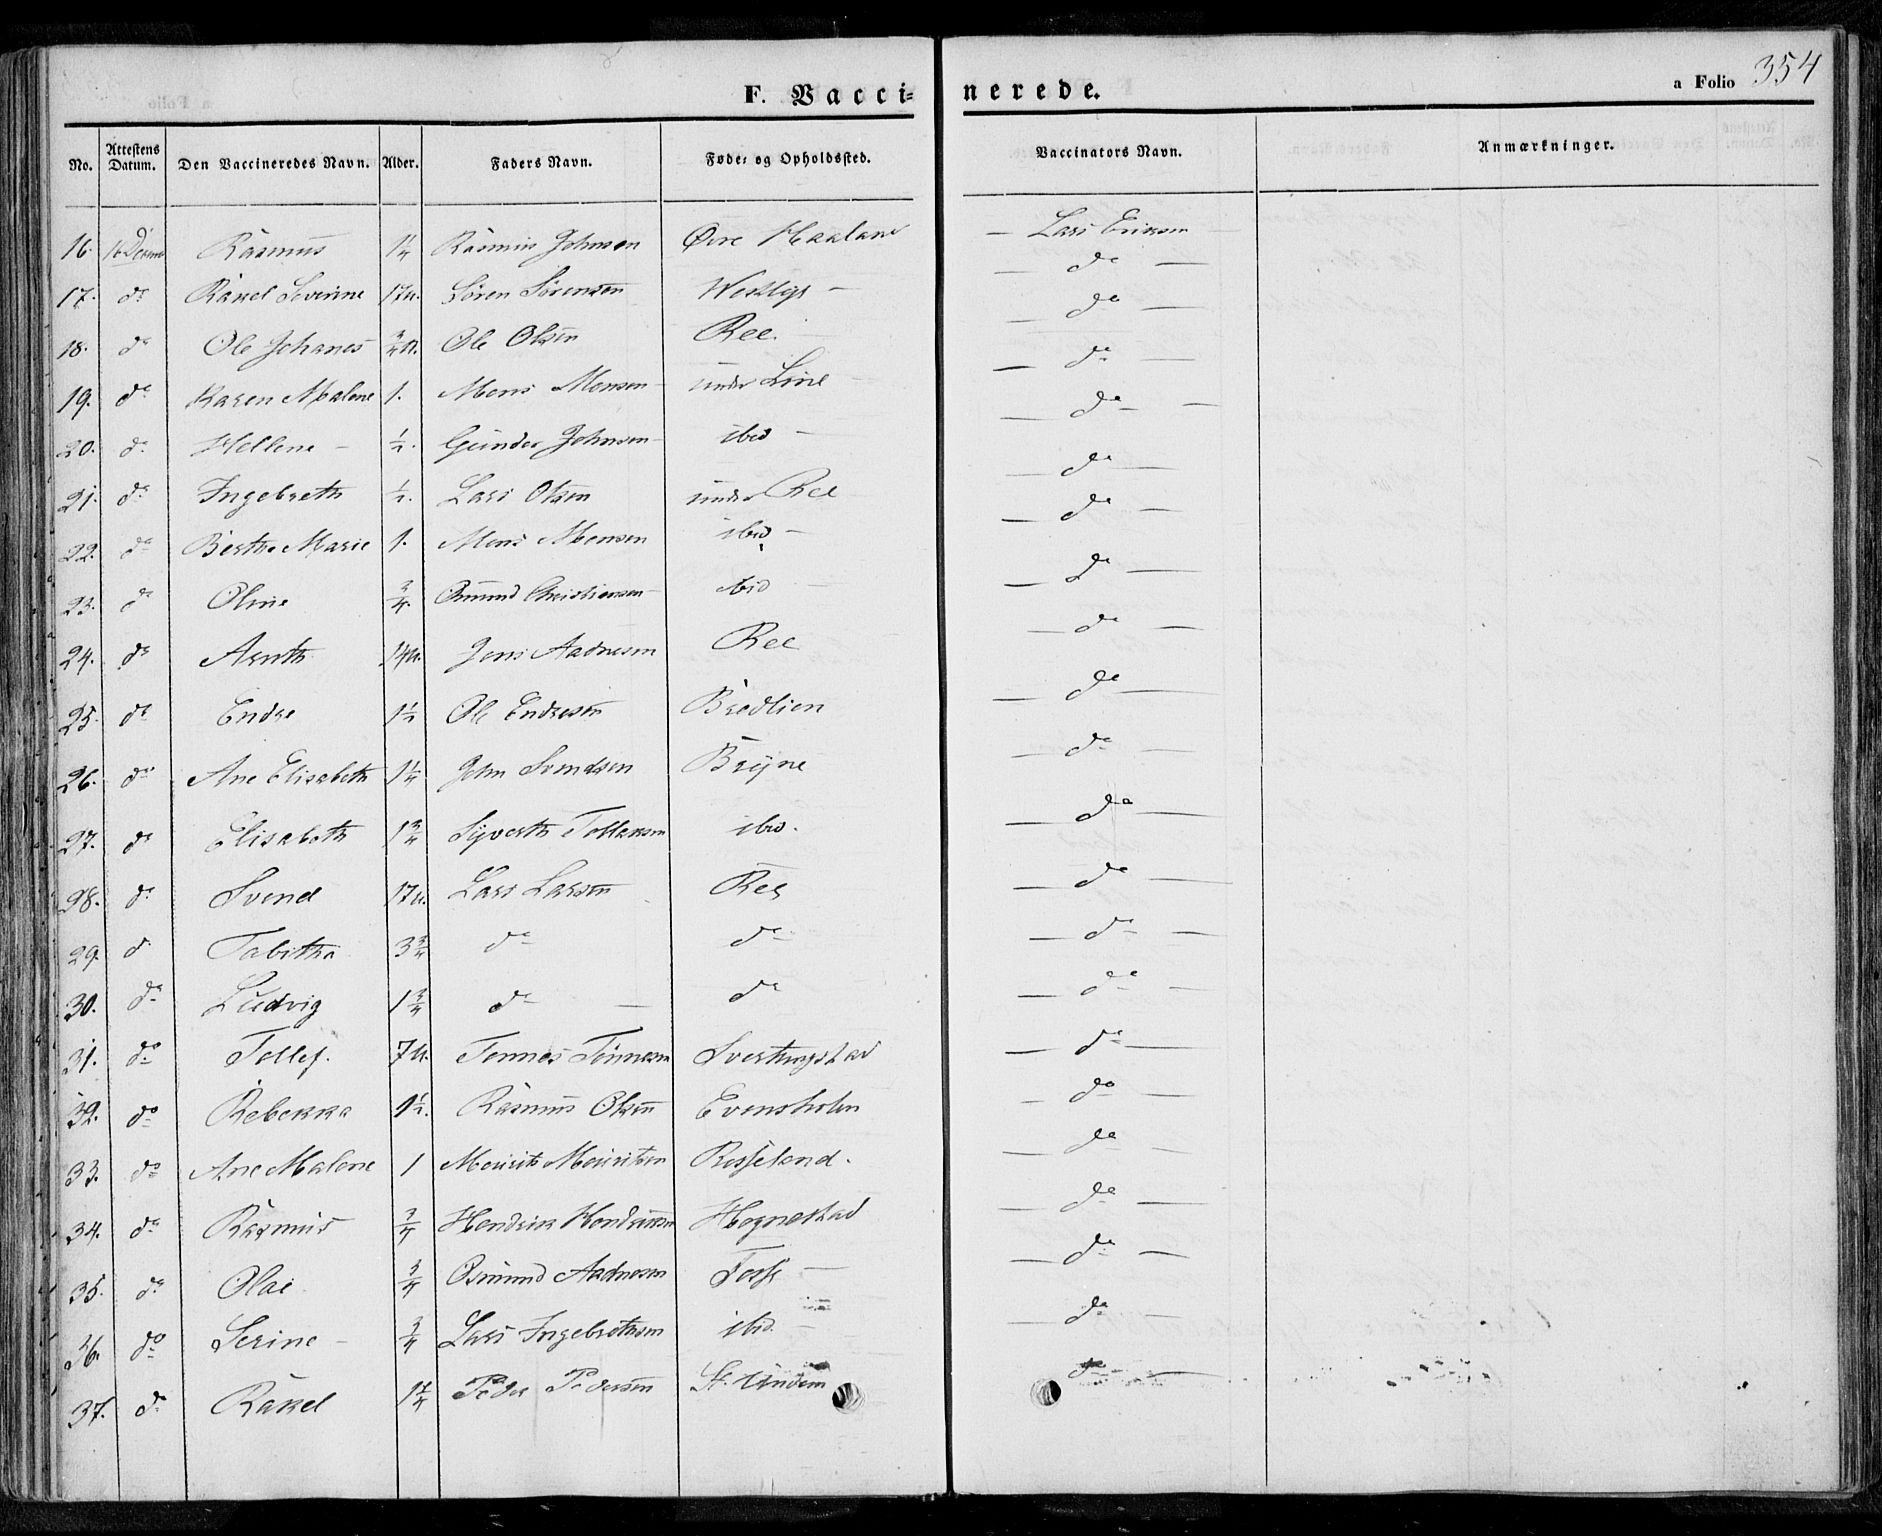 F. Vacci- nerede. a Folio 354
No. Attestens Datum. Den Vaccineredes Navn. Alder. Faders Navn. Føde- og Opholdssted. Vaccinators Navn. Anmærkninger.
16. Rasmus 1¼ Rasmus Johnsen Øvre Haaland — Lars Eriksen —
17. do Rakel Severine 17 u. Sören Sörensen — do —
18. do Ole Johanes ¾ Ole Olsen Ree. — do —
19. do Karen Malene 1. Mons Monsen under Line — do —
20. do Hellene — ½. Gunder Johnsen ibid — — do —
21. do Ingebreth ½. Lars Olsen under Ree — do —
22. do Berthe Marie 1. Mons Monsen ibid — — do —
23. do Oline ¾ Osmund Christiansen ibid — — do —
24. do Arnth 14 u. Jens Aadnesen Ree — do —
25. do Endre 1½ Ole Endresen Bredlien — do —
26. do Ane Elisabeth 1¼ John Svendsen Bryne — do —
27. do Elisabeth 1¾ Syverth Tollaksen ibid. — do —
28. do Svend 17 u. Lars Larsen Ree — do —
29. do Tabitha 3¾ do do — do —
30. do Ludvig 1¾ do — do — do —
31. do Tollef. 7 u. Tönnes Tönnesen Svertingstad — do —
32. do Rebekka 1½. Rasmus Olsen Evensholm — do —
33. do Ane Malene 1 Mourits Mouritsen Rosseland. — do —
34. do Rasmus ¾ Hendrik Hendriksen Hognestad — do —
35. do Olai ¾ Osmund Aadnesen Fosse — — do —
36. do Serine — ¾ Lars Ingebrethsen ibid. — — do —
37. do Rakel 1¼ Peder Pedersen St. Undem — do —